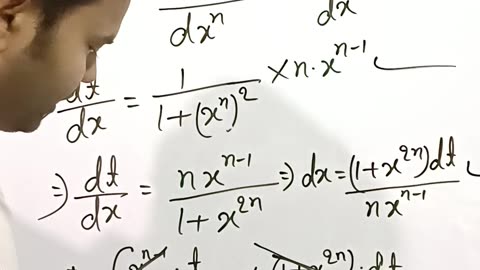 dx^n dx
dt/dx = 1/(1+(x^n)^2) × n·x^{n-1}
⇒ dt/dx = n x^{n-1}/(1+x^{2n}) ⇒ dx = (1+x^{2n})dt/(n x^{n-1})
x^{n-1} · t (1+x^{2n}) · dt